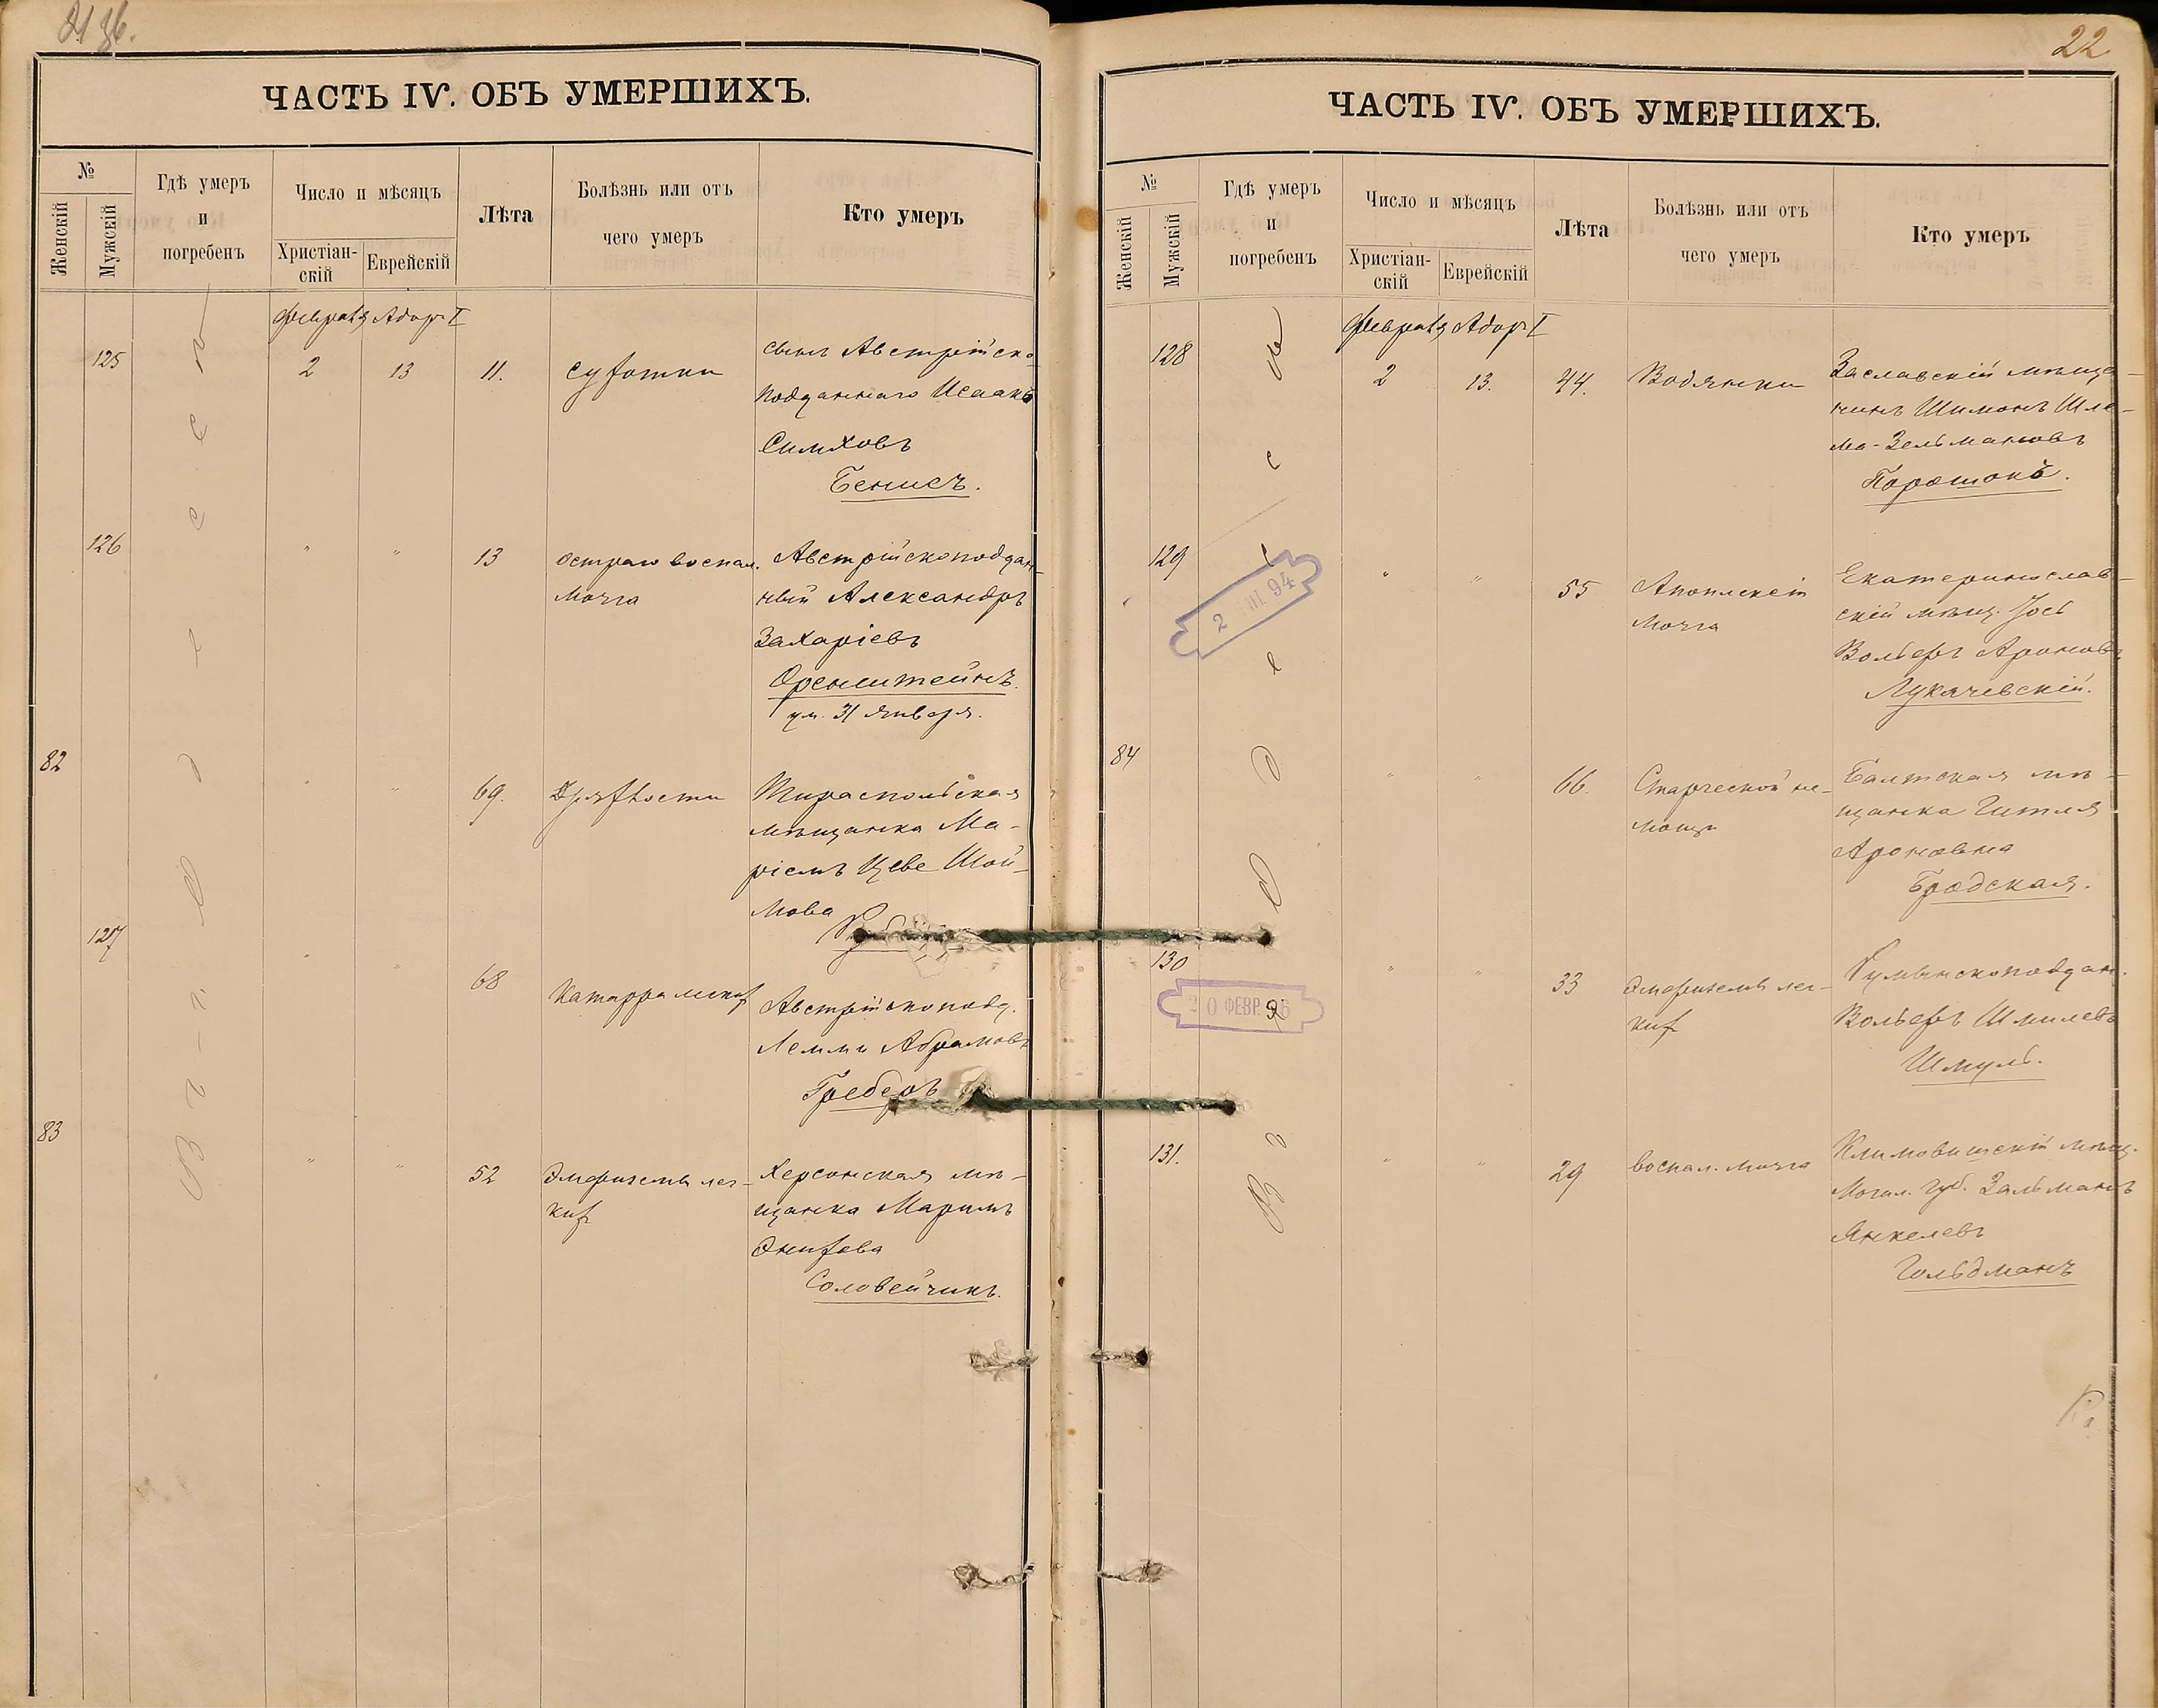 21 зб.
ЧАСТЬ IV. ОБЪ УМЕРШИХЪ.
№
Женскій
Мужскій
Гдѣ умеръ
и
погребенъ
Число и мѣсяцъ
Христіан-
скій
Еврейскій
Лѣта
Болѣзнь или отъ
чего умеръ
Кто умеръ
Въ г. Одессѣ
Февраля Адоръ I
125
2
13
11.
Сухотки
сынъ Австрійско
подданнаго Исаакъ
Симховъ
Бенисъ.
126
"
"
13
Остраго воспал.
мозга
Австрійскоподдан-
ный Александръ
Захаріевъ
Оренштейнъ.
ум. 31 января.
82
"
"
69.
Дряхлости
Тираспольская
мѣщанка Ма-
ріемъ Цеве Шой-
мова
127
"
"
68
Катарра
Австрійскоподд.
Лемми Абрамовъ
Греберъ
83
"
"
52
Эмфиземы лег-
кихъ
Херсонская мѣ-
щанка Маримъ
Соловейчикъ.
22
ЧАСТЬ IV. ОБЪ УМЕРШИХЪ.
№
Женскій
Мужскій
Гдѣ умеръ
и
погребенъ
Число и мѣсяцъ
Христіан-
скій
Еврейскій
Лѣта
Болѣзнь или отъ
чего умеръ
Кто умеръ
Въ г. Одессѣ
Февраля Адоръ I
128
2
13.
44.
Водянки
Заславскій мѣща-
нинъ Шимонъ Шле-
ма-Зельмановъ
Порошокъ.
129
2 III 94
"
"
55
Апоплексіи
мозга
Екатеринослав-
скій мѣщ. Іось
Вольфъ Ароновъ
Лукачевскій.
84
"
"
66.
Старческой не-
мощи
Балтская мѣ-
щанка Гитля
Ароновна
Бродская.
130
20 ФЕВР. 96
"
"
33
Эмфиземы лег-
кихъ
Румынскоподдан.
Вольфъ Шмилевъ
Шмуль.
131.
"
"
29
воспал. мозга
Климовичскій мѣщ.
Могил. губ. Зальманъ
Янкелевъ
Гольдманъ